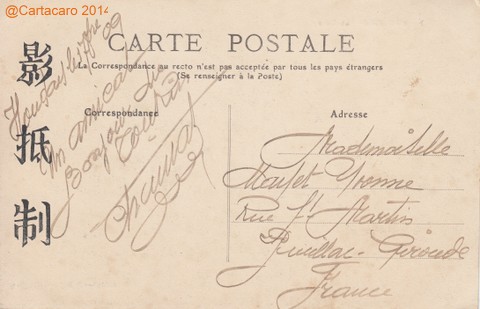 @Cartacaro 2014
CARTE POSTALE
La Correspondance au recto n'est pas acceptée par tous les pays étrangers
(Se renseigner à la Poste.)
Correspondance
Adresse
影
抵
制
09
Un amical
Bonjour du
Tonkin
Mademoiselle
Yvonne
Rue St Martin
Gironde
France